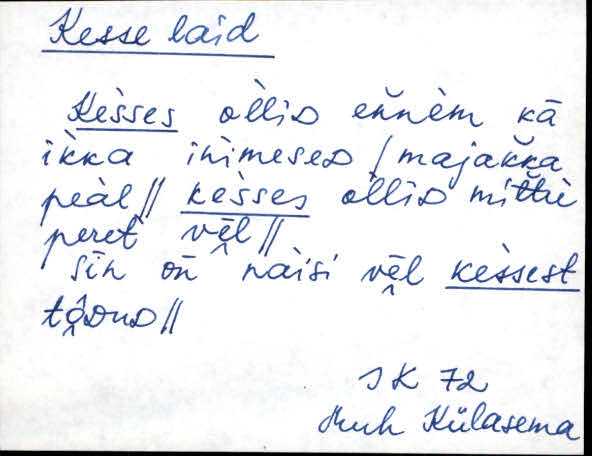 Kesse laid
Kèsses òllid ennèm kā
ìkka inimesed / majakka
peàl // kèsses òllid mittu
peret vēl //
sīn on nàisi vēl kèssest
tōdud //
IK 72
Muh Külasema